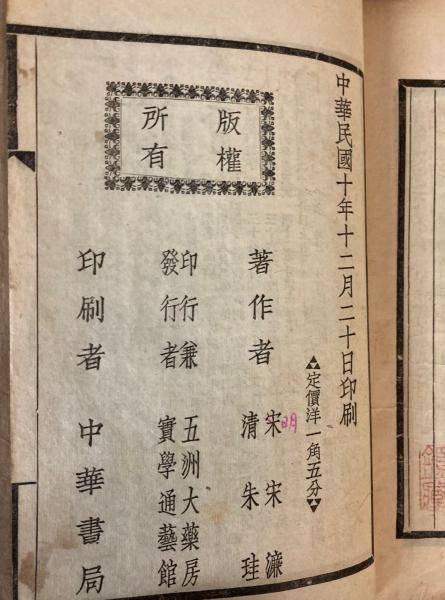 中華民國十年十二月二十日印刷
定價洋一角五分
版權
所有
著作者
宋 宋濂
明
清 朱珪
印行兼
發行者
五洲大藥房
實學通藝館
印刷者 中華書局